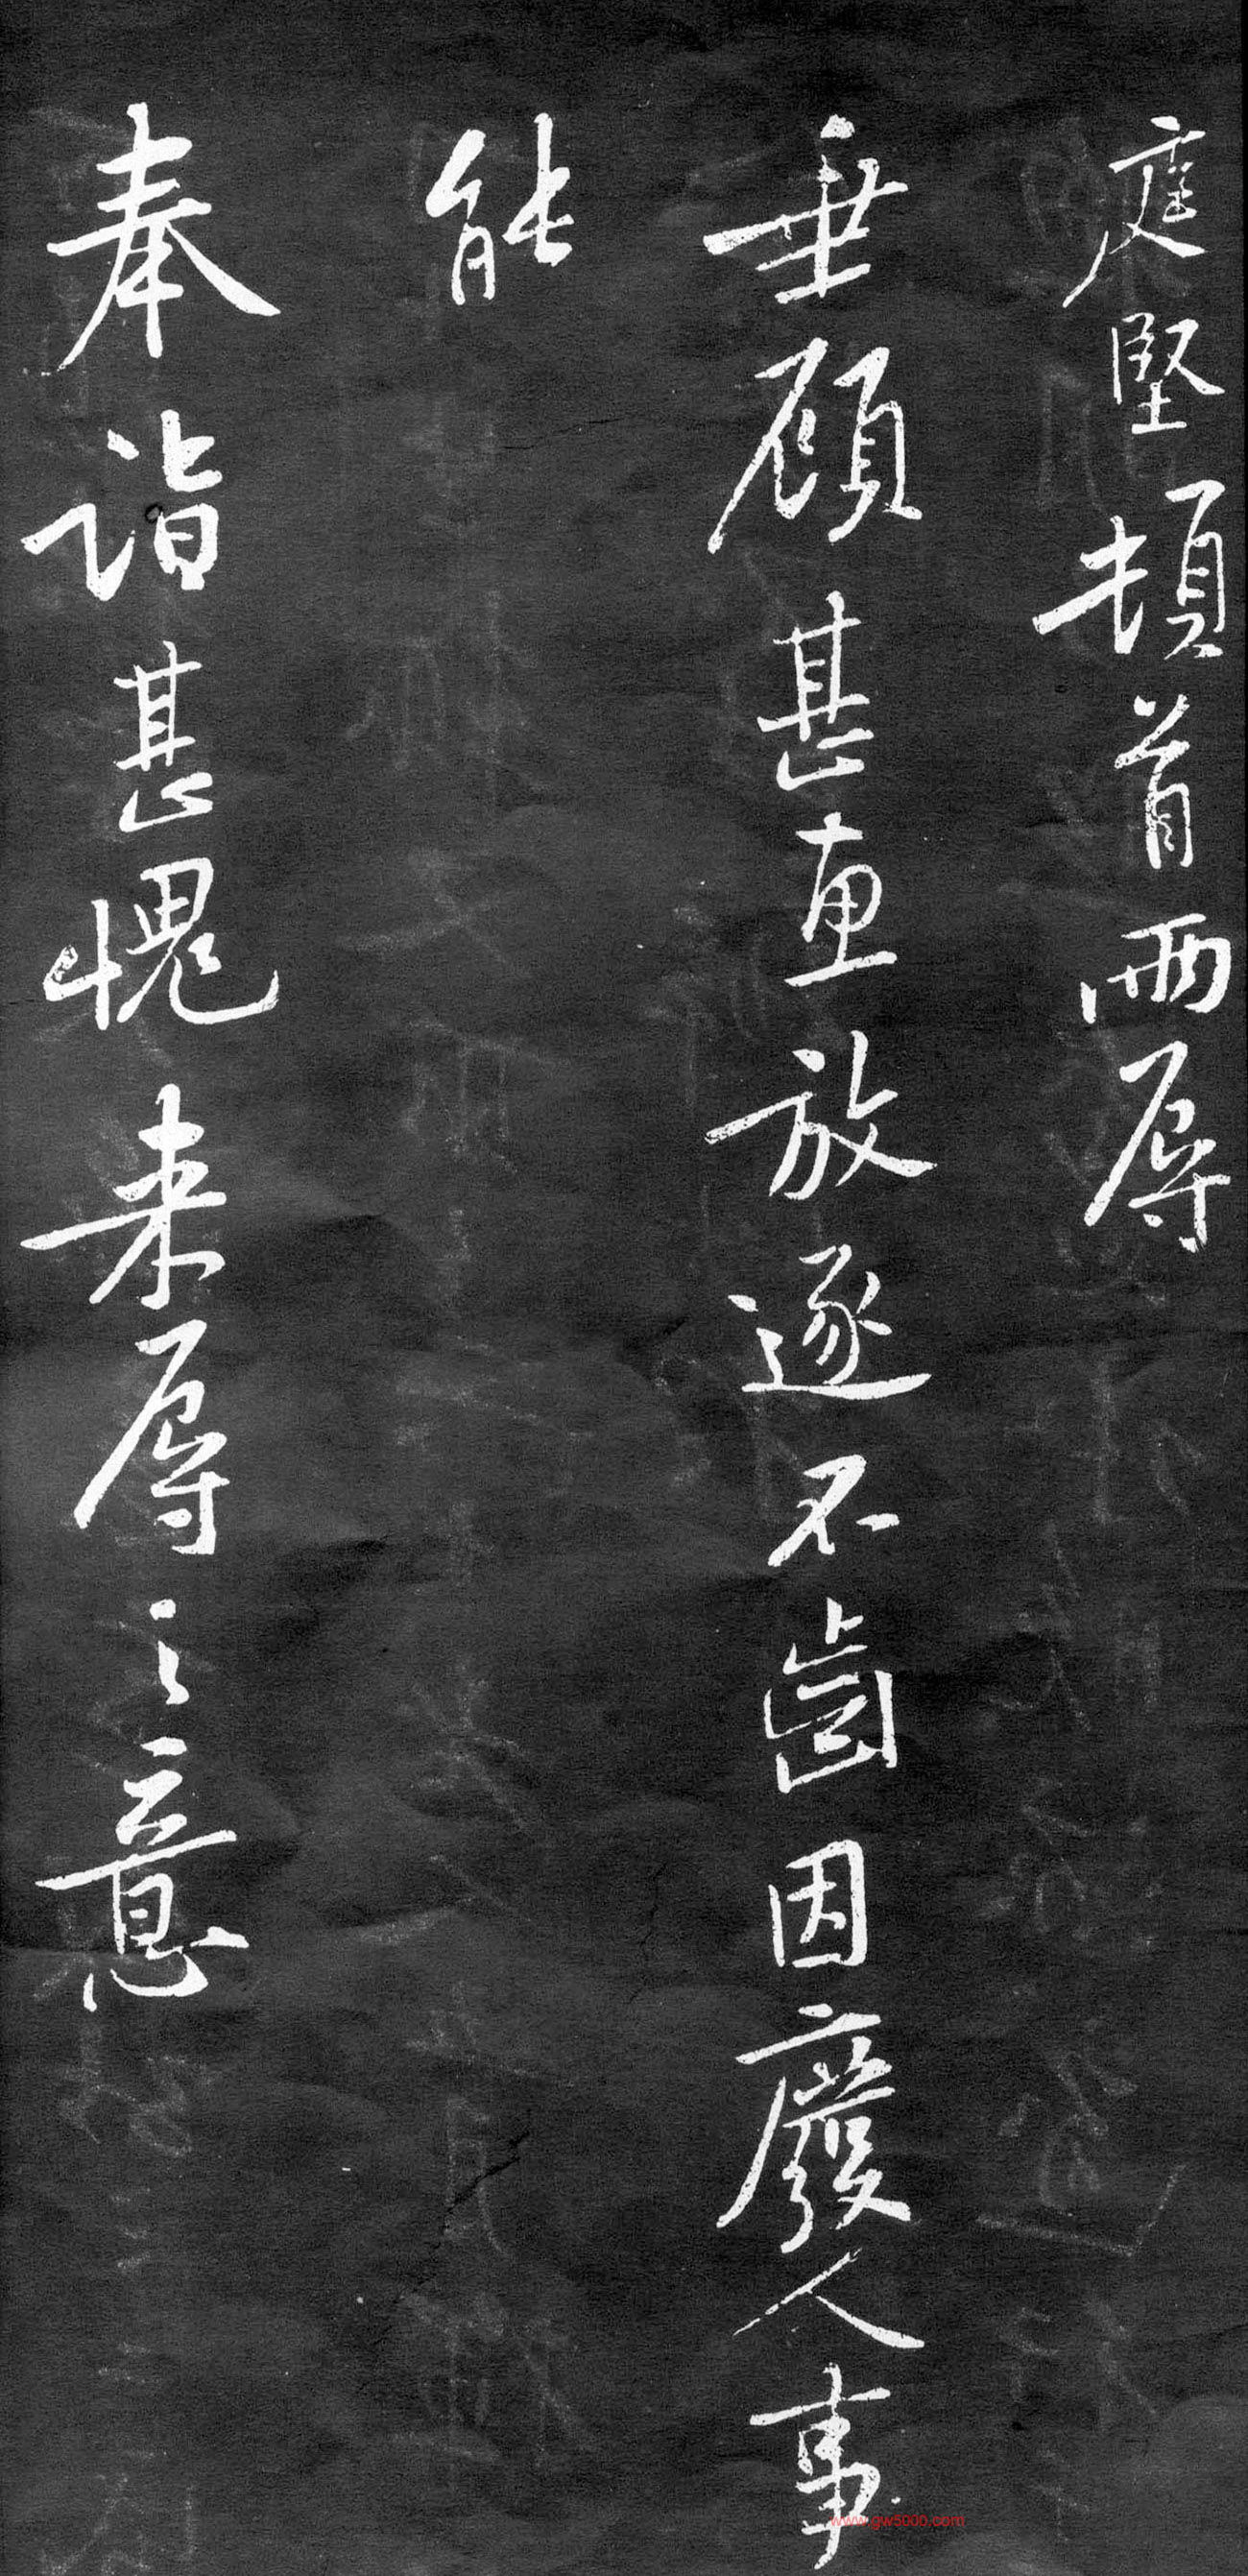 庭堅頓首兩辱
垂顧甚惠放逐不齒因廢人事
能
奉詣甚愧来辱之意
www.gw5000.com